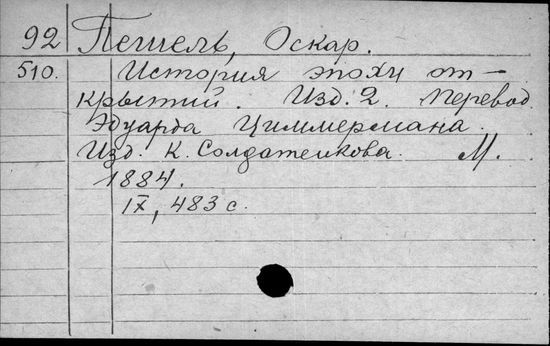 92 Пешель, Оскар.
510. История эпохи от-
крытий. Изд. 2. Перевод
Эдуарда Циммермана.
Изд. К. Солдатенкова. М.
1884.
IX, 483 с.